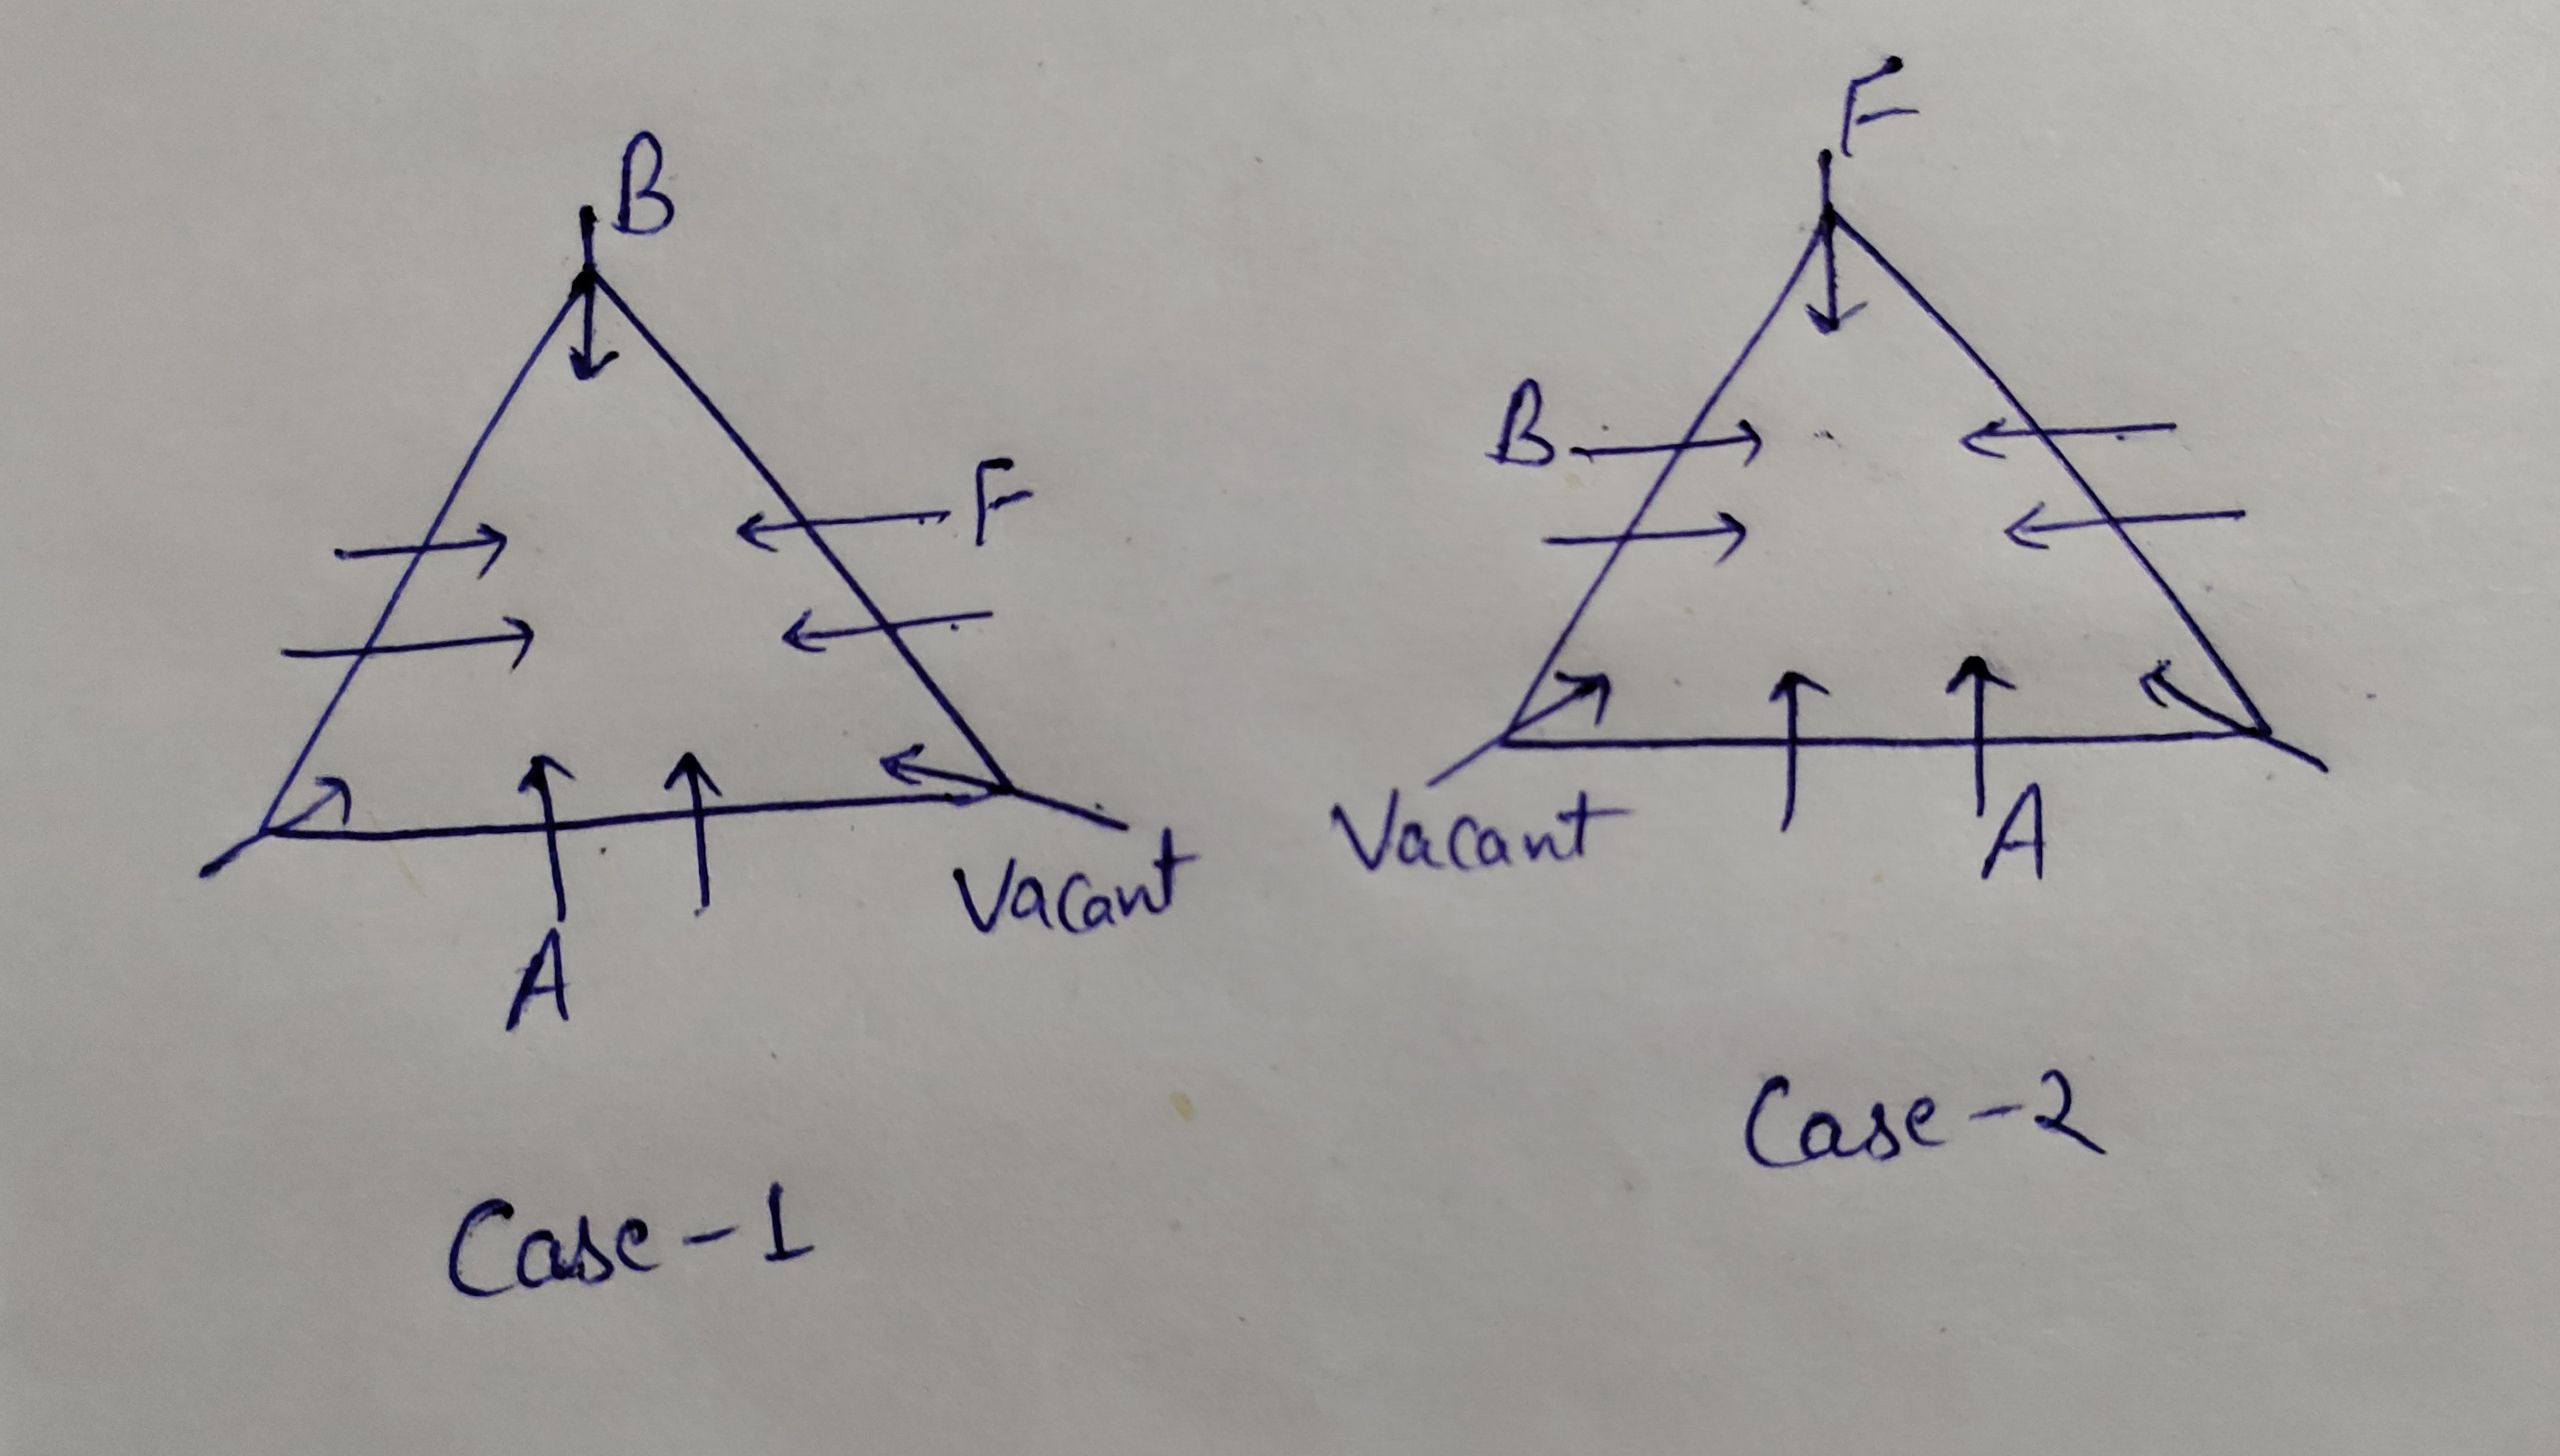 B
F
A
Vacant
Case-1
F
B
Vacant
A
Case-2